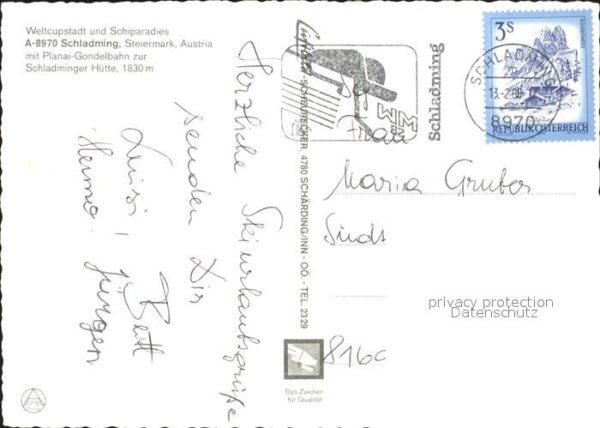 Weltcupstadt und Schiparadies
A-8970 Schladming, Steiermark, Austria
mit Planai-Gondelbahn zur
Schladminger Hütte, 1830 m
Herzliche Skiurlaubsgrüße
senden Dir
Luisi, Bett
Heimo, Jürgen
SCHEURECKER, 4780 SCHÄRDING/INN - OÖ. - TEL. 2329
Das Zeichen
für Qualität
Schladming
3S
REPUBLIK ÖSTERREICH
SCHLADMING
8970
Frau
Maria Gruber
816c
privacy protection
Datenschutz